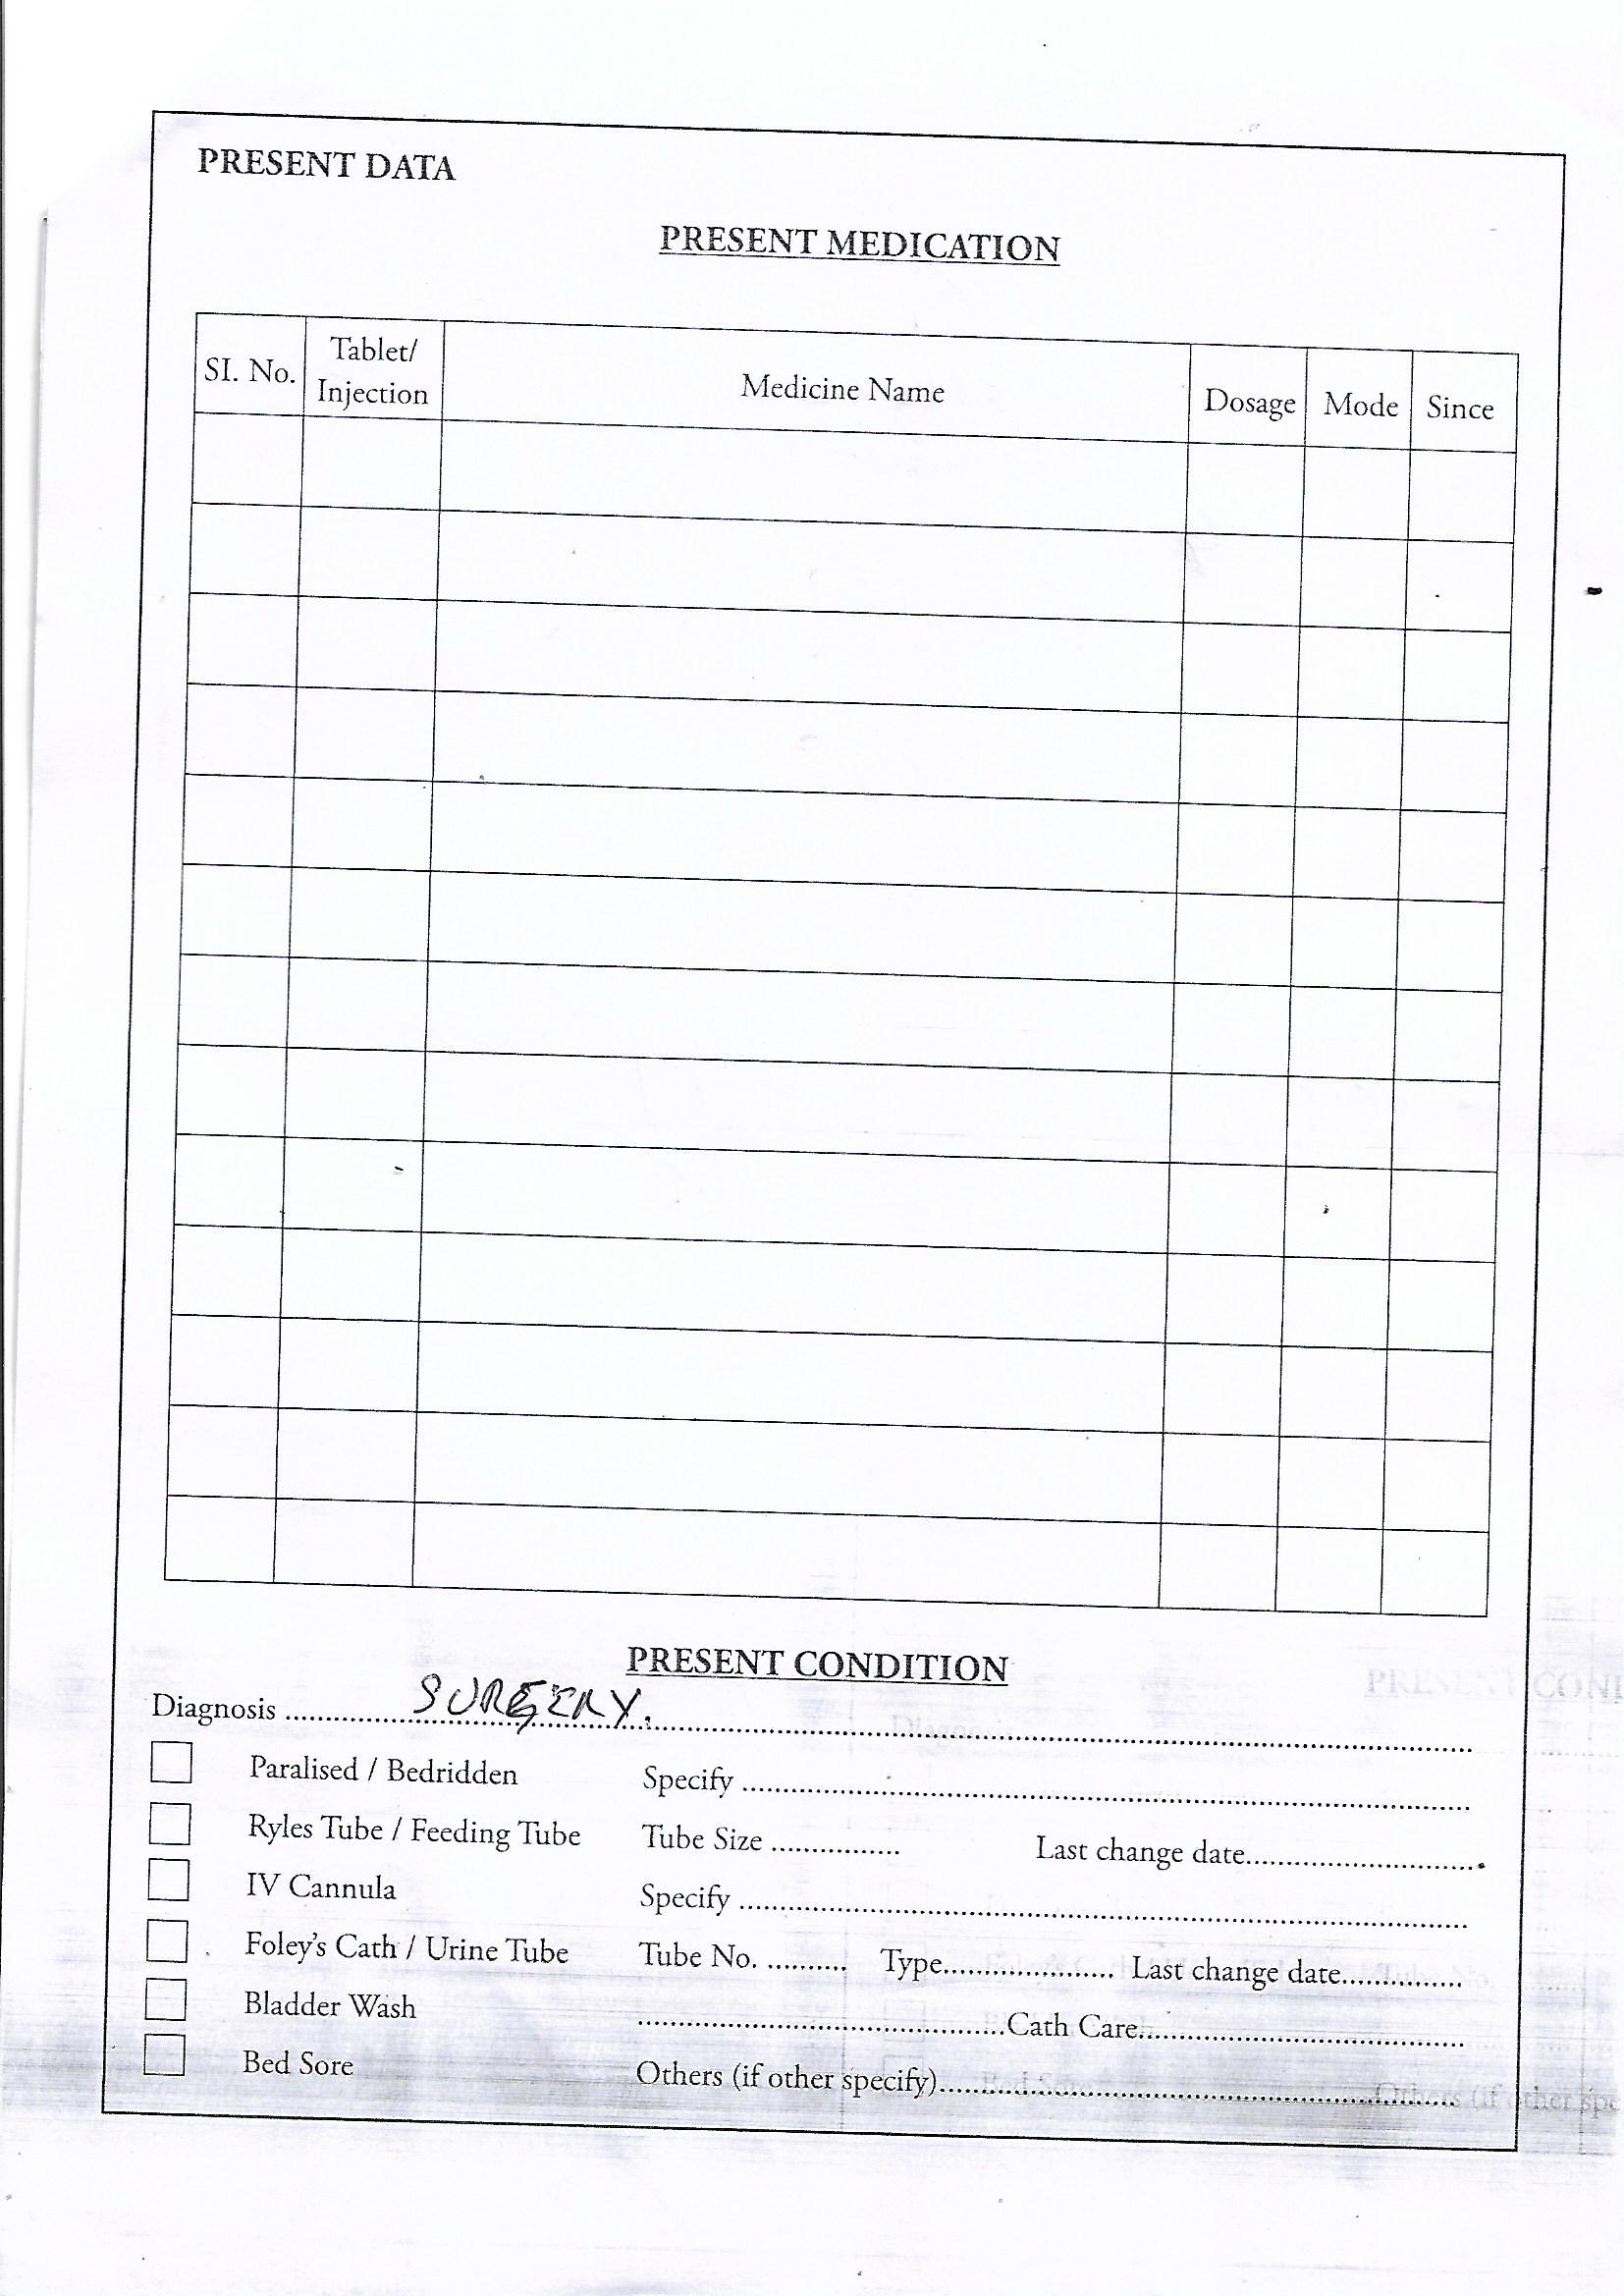 PRESENT DATA
PRESENT MEDICATION
SI. No. Tablet/ Injection Medicine Name Dosage Mode Since
PRESENT CONDITION
Diagnosis .......... SURGERY. ..........
Paralised / Bedridden Specify ..........
Ryles Tube / Feeding Tube Tube Size .......... Last change date..........
IV Cannula Specify ..........
Foley's Cath / Urine Tube Tube No. .......... Type.......... Last change date..........
Bladder Wash ..........Cath Care..........
Bed Sore Others (if other specify)..........